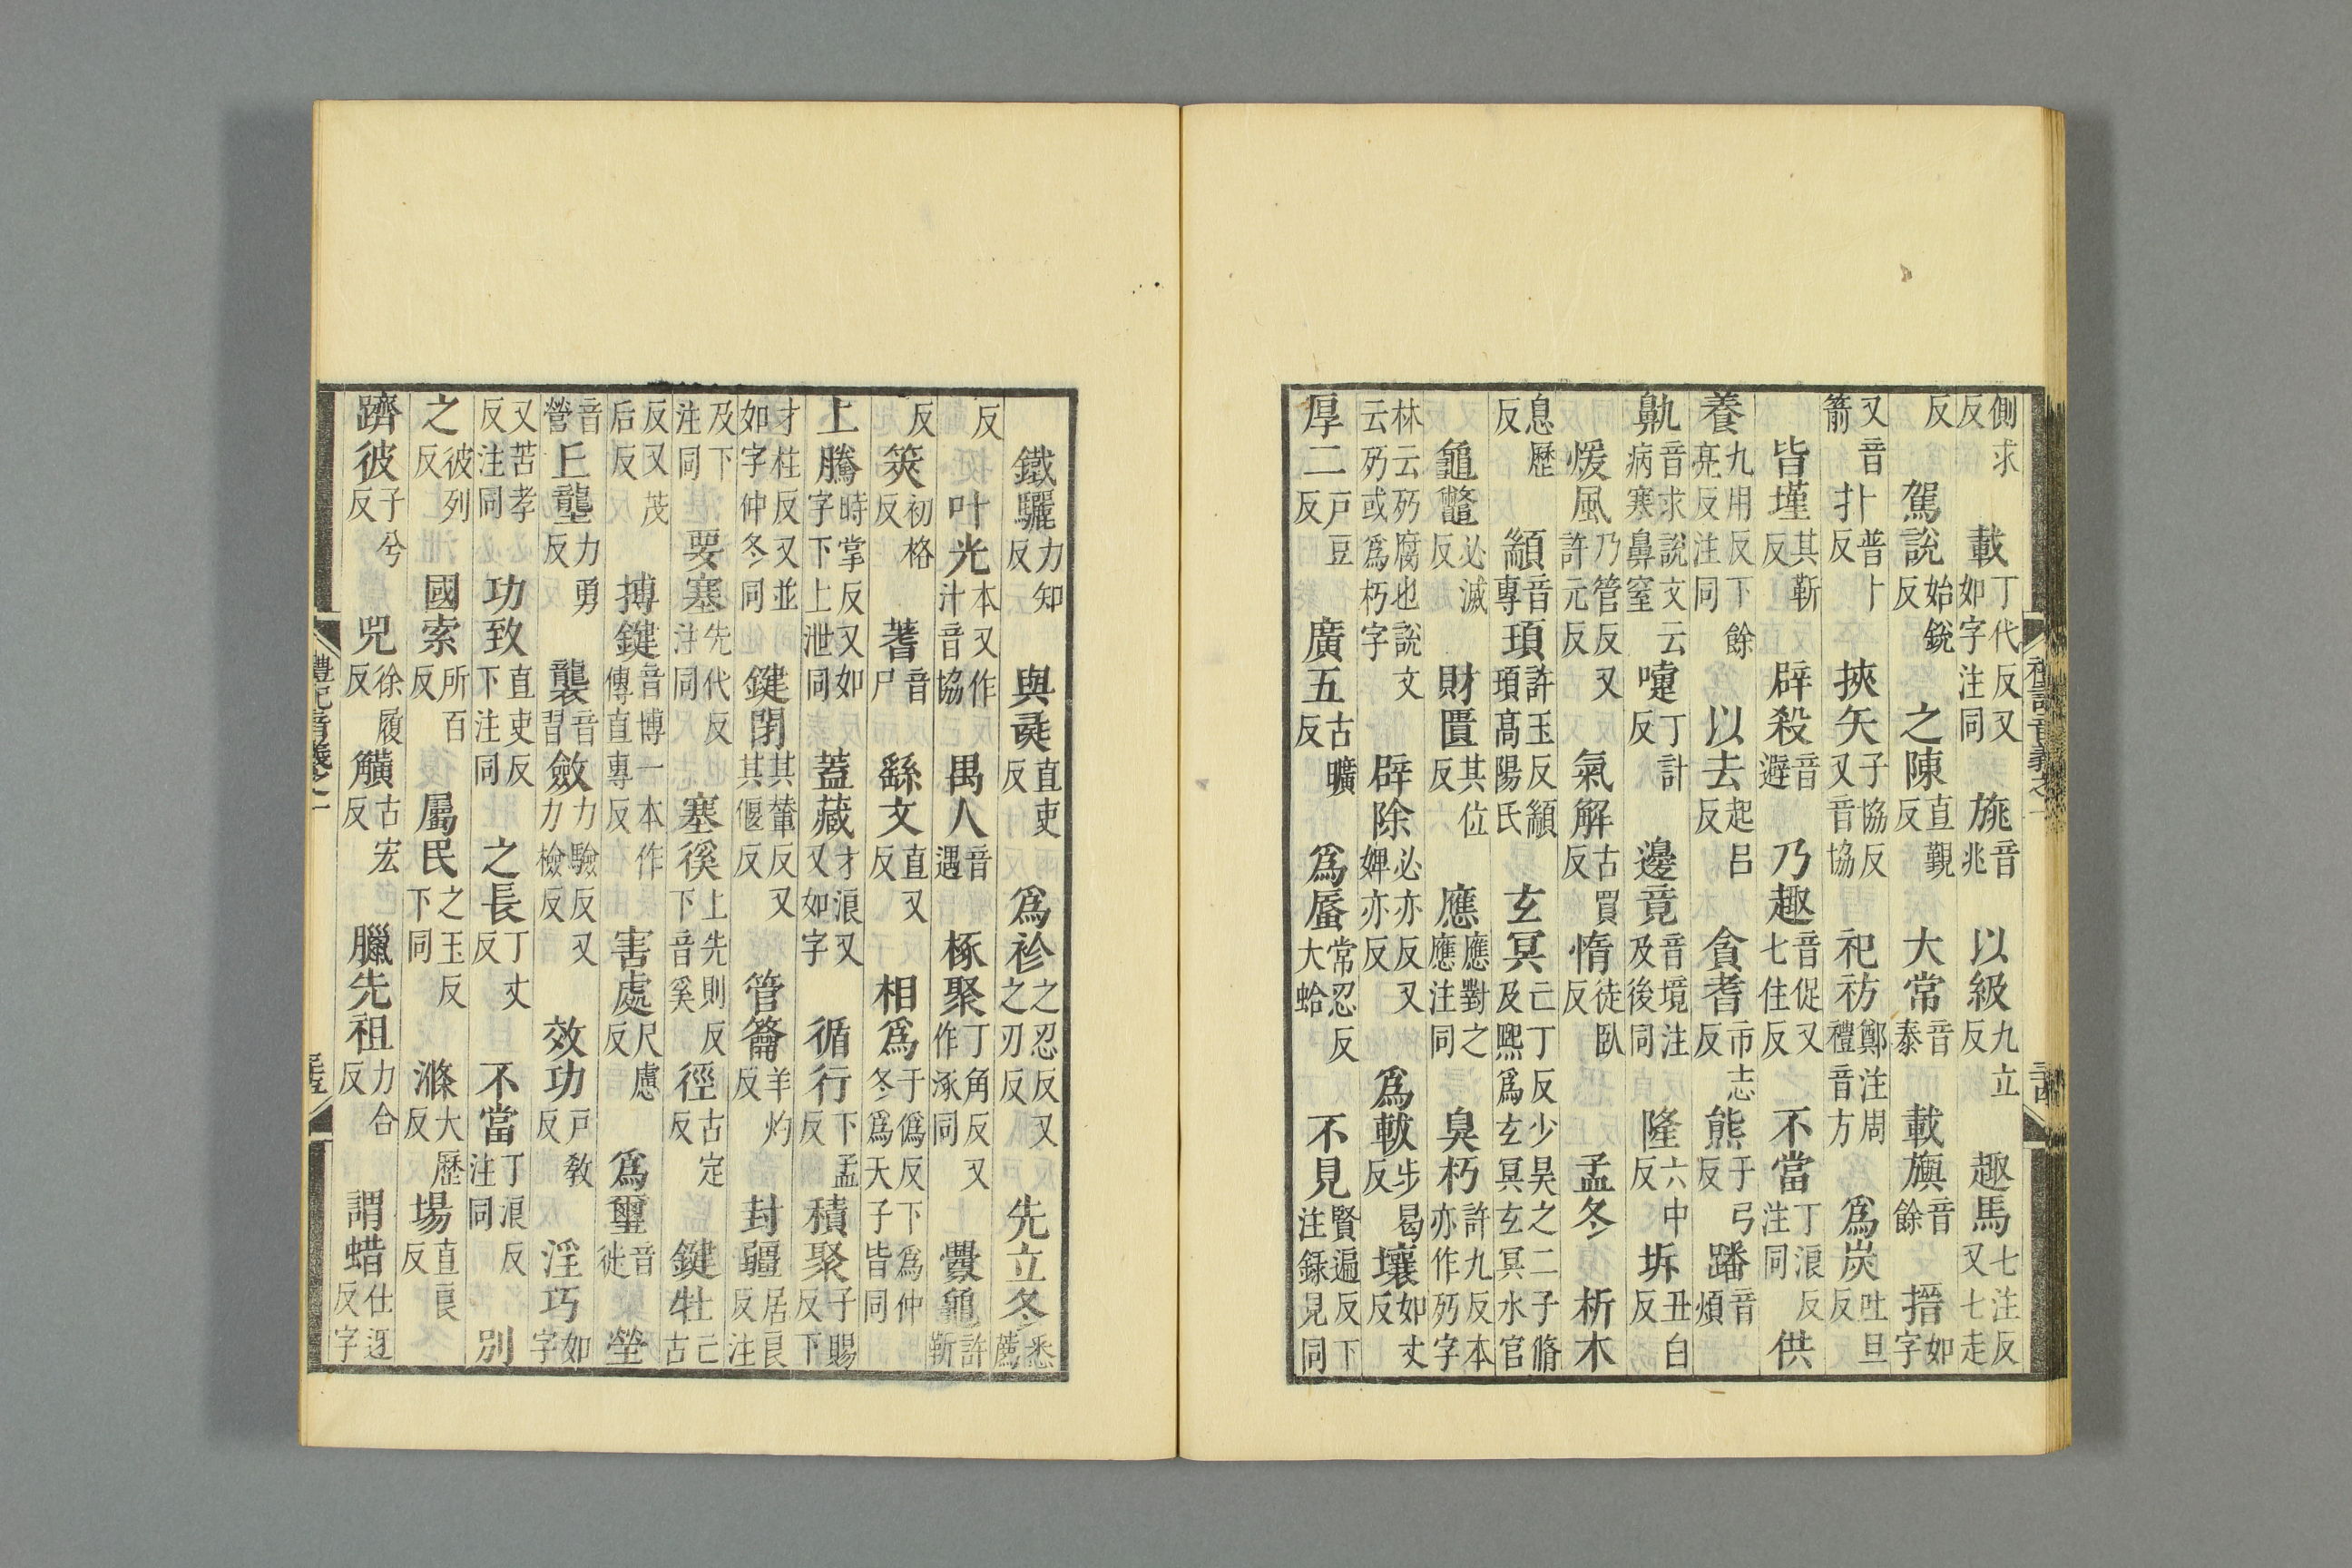 側求反載丁代反又如字注同旐音兆以級九立反趣馬七注反又七走
反駕說始銳反之陳直覲反大常音泰載旟音餘搢如字
又音箭扑普卜反挾矢子協反又音協祀祊鄭注周禮音方為炭吐旦反
皆墐其靳反辟殺音避乃趣音促又七住反不當丁浪反注同供
養九用反下餘亮反注同以去起呂反貪耆市志反熊于弓反蹯音煩
鼽音求說文云病寒鼻窒嚏丁計反邊竟音境注及後同隆六中反坼丑白反
煖風乃管反又許元反氣解古買反惰徒臥反孟冬析木
息歷反顓音專頊許玉反顓頊髙陽氏玄冥亡丁反少昊之二子脩及熈為玄冥玄冥水官
龜鼈必滅反財匱其位反應應對之應注同臭朽許九反本亦作㱙字
林云㱙腐也說文云㱙或為朽字辟除必亦反又婢亦反為軷步曷反壤如丈反
厚二戶豆反廣五古曠反為蜃常忍反大蛤不見賢遍反下注録見同
禮記音義之一
鐵驪力知反與彘直吏反為袗之忍反又之刃反先立冬悉薦
反叶光本又作汁音協禺人音遇椓聚丁角反又作涿同釁龜許靳
反筴初格反蓍音尸繇文直又反相為于偽反下為仲冬為天子皆同
上騰時掌反又如字下上泄同蓋藏才浪反又如字循行下孟反積聚子賜反下
才柱反又並如字仲冬同鍵閉其輦反又其偃反管籥羊灼反封疆居良反注
及下注同要塞先代反注同塞徯上先則反下音奚徑古定反鍵牡亡古
反又茂后反搏鍵音博一本作傳直專反害處尺慮反為璽音徙塋
音營丘壟力勇反襲音習斂力驗反又力檢反效功戶教反淫巧如字
又苦孝反注同功致直吏反下注同之長丁丈反不當丁浪反注同別
之彼列反國索所百反屬民之玉反下同滌大歷反場直良反
躋彼子兮反兕徐履反觵古宏反臘先祖力合反謂蜡仕迓反字
禮記音義之一